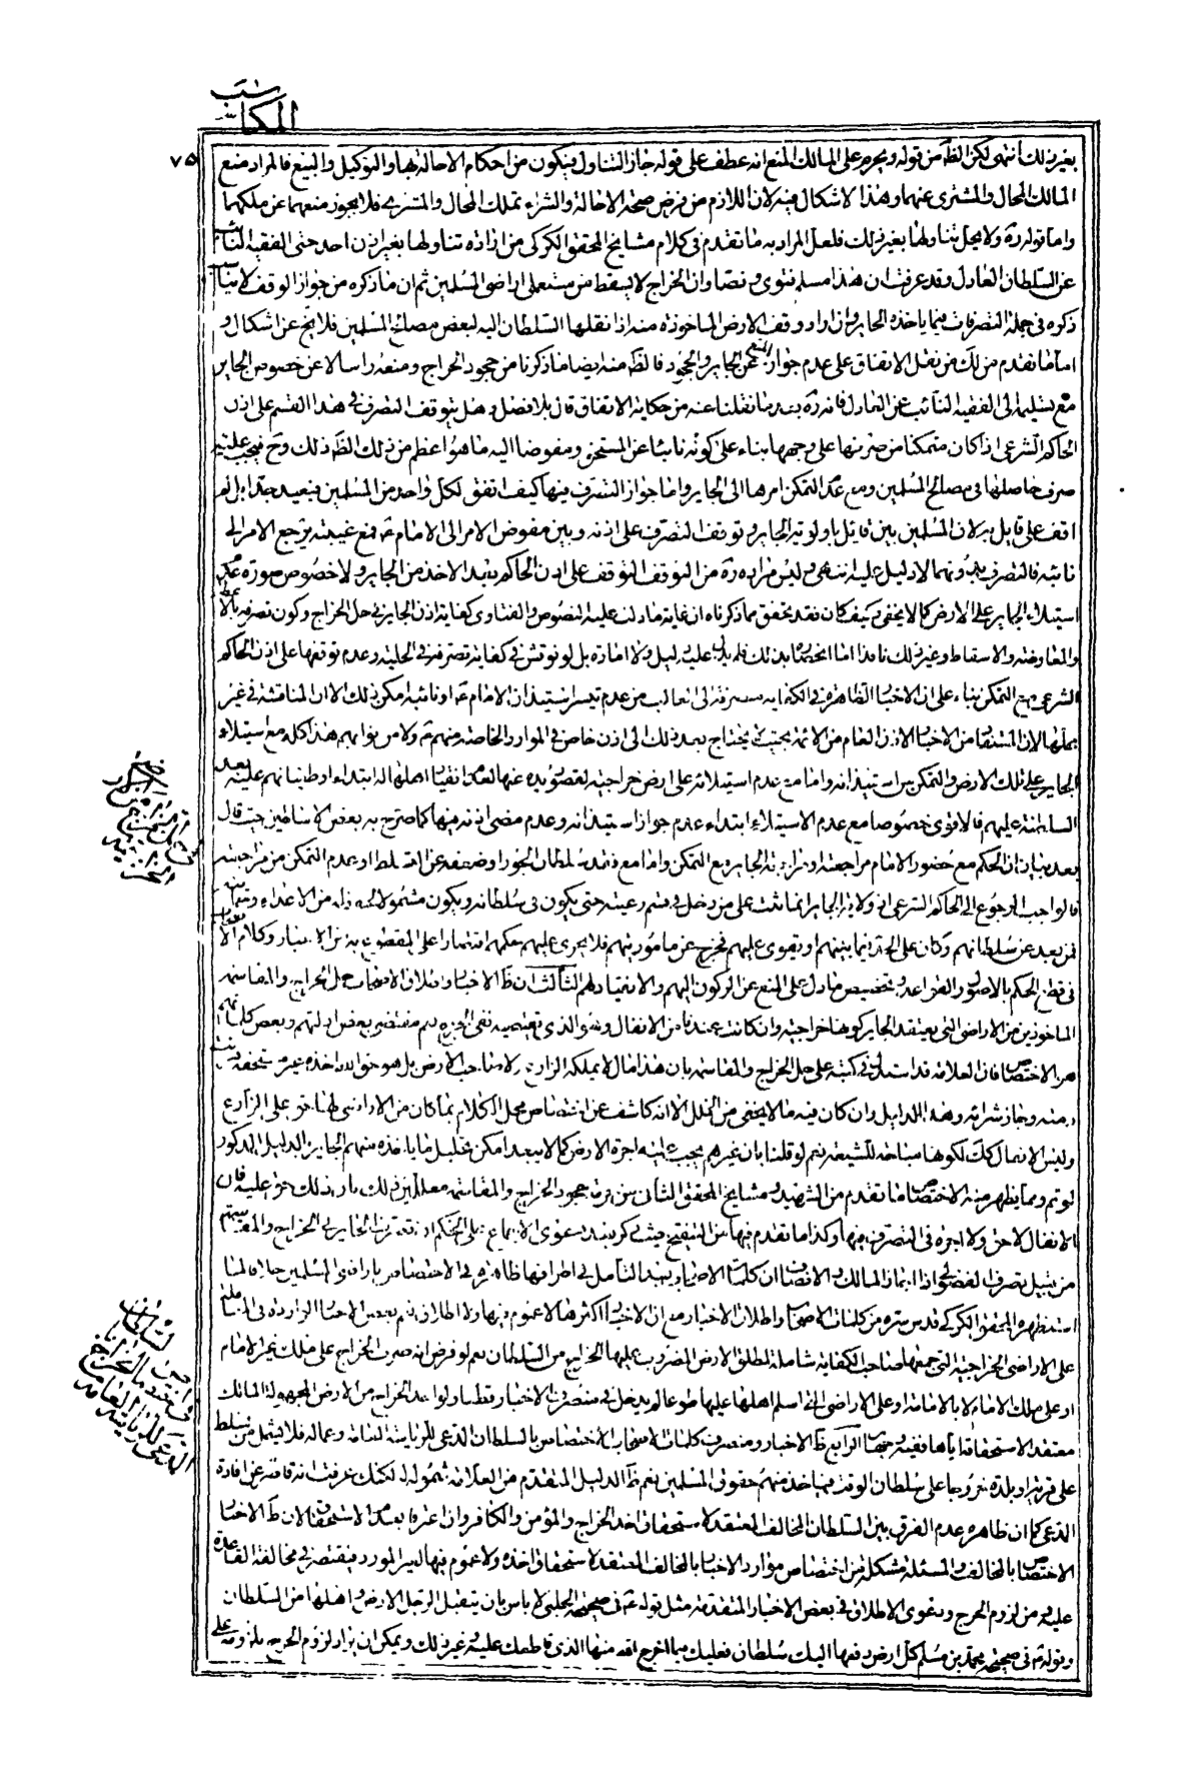 المكاسب
٧٥
بغير ذلك انتهى لكن الظ من قوله ويحرم على المالك المنع انه عطف على قوله جاز التناول فيكون من احكام الاحالة بها والتوكيل والبيع فالمراد منع
المالك المحال والمشترى عنهما وهذا لا اشكال فيه لان اللازم من فرض صحة الاحالة والشراء تملك المحال والمشترى فلا يجوز منعهما عن ملكهما
واما قوله ره ولا يحل تناولها بغير ذلك فلعل المراد به ما تقدم فى كلام مشايخ المحقق الكركى من ارادة تناولها بغير اذن احد حتى الفقيه النائب
عن السلطان العادل وقد عرفت ان هذا مسلم فتوى ونصا وان الخراج لا يسقط من مستعملى اراضى المسلمين ثم ان ما ذكره من جواز الوقف لا يناسب
ذكره فى جملة التصرفات فيما ياخذه الجاير وان اراد وقف الارض الماخوذة منه اذا نقلها السلطان اليه لبعض مصالح المسلمين فلا يخ عن اشكال و
اما ما تقدم من لك من نقل الاتفاق على عدم جواز المنع عن الجاير والجحود فالظ منه ايضا ما ذكرنا من جحود الخراج ومنعه راسا لا عن خصوص الجاير
مع تسليمه الى الفقيه النائب عن العادل فانه ره بعد ما نقلنا عنه من حكاية الاتفاق قال بلا فصل وهل يتوقف التصرف فى هذا القسم على اذن
الحاكم الشرعى اذا كان متمكنا من صرفها على وجهها بناء على كونه نائبا عن المستحق ومفوضا اليه ما هو اعظم من ذلك الظ ذلك وح فيجب عليه
صرف حاصلها فى مصالح المسلمين ومع عدم التمكن امرها الى الجاير واما جواز التصرف فيها كيف اتفق لكل واحد من المسلمين فبعيد جدا بل لم
اقف على قايل به لان المسلمين بين قايل باولوية الجاير وتوقف التصرف على اذنه وبين مفوض الامر الى الامام ع فمع غيبته يرجع الامر الى
نائبه فالتصرف بدونهما لا دليل عليه انتهى وليس مراده ره من التوقف التوقف على اذن الحاكم بعد الاخذ من الجاير ولا خصوص صورة عدم
استيلاء الجاير على الارض كما لا يخفى وكيف كان فقد تحقق مما ذكرناه ان غاية ما دلت عليه النصوص والفتاوى كفاية اذن الجاير فى حل الخراج وكون تصرفه بالاعطاء
والمعاوضة والاسقاط وغير ذلك نافذا اما انحصاره بذلك فلم يدل عليه دليل ولا امارة بل لو نوقش فى كفاية تصرفه فى الحلية وعدم توقفها على اذن الحاكم
الشرعى مع التمكن بناء على ان الاخبار الظاهرة فى الكفاية منصرفة الى الغالب من عدم تيسر استيذان الامام ع او نائبه امكن ذلك الا ان المناقشة فى غير
محلها لان المستفاد من الاخبار الاذن العام من الائمة بحيث لا يحتاج بعد ذلك الى اذن خاص فى الموارد الخاصة منهم ع ولا من نوابهم هذا كله مع استيلاء
الجاير على تلك الارض والتمكن من استيذانه واما مع عدم استيلائه على ارض خراجية لقصور يده عنها لعدم انقياد اهلها له ابتداء او طغيانهم عليه بعد
السلطنة عليهم فالاقوى خصوصا مع عدم الاستيلاء ابتداء عدم جواز استيذانه وعدم مضى اذنه فيها كما صرح به بعض الاساطين حيث قال
بعد بيان ان الحكم مع حضور الامام مراجعته او مراجعة الجاير مع التمكن واما مع فقد سلطان الجور او ضعفه عن التسلط او عدم التمكن من مراجعته
فالواجب الرجوع الى الحاكم الشرعى اذ ولاية الجاير انما ثبتت على من دخل فى قسم رعيته حتى يكون فى سلطانه ويكون مشمولا لحمايته من الاعداء
فمن بعد عن سلطانهم وكان على الحد فيما بينهم او يقوى عليهم فخرج عن ماموريتهم فلا يجرى عليهم حكمهم اقتصارا على المقطوع به من الاخبار وكلام الاصحاب
فى قطع الحكم بالاصول والقواعد وتخصيص ما دل على المنع عن الركون اليهم والانقياد لهم الثالث ان ظ الاخبار واطلاق الاصحاب حل الخراج والمقاسمة
الماخوذين من الاراضى التى يعتقد الجاير كونها خراجية وان كانت عندنا من الانفال وهو الذى يقتضيه نفى الحرج نعم مقتضى بعض ادلتهم وبعض كلماتهم
هو الاختصاص فان العلامة قد استدل فى كتبه على حل الخراج والمقاسمة بان هذا مال لا يملكه الزارع ولا صاحب الارض بل هو حق لله اخذه غير مستحقه فبرئت
ذمته وجاز شرائه وهذا الدليل وان كان فيه ما لا يخفى من الخلل الا انه كاشف عن اختصاص محل الكلام بما كان من الاراضى التى لها حق على الزارع
وليس الانفال كك لكونها مباحة للشيعة نعم لو قلنا بان غيرهم يجب عليه اجرة الارض كما لا يبعد امكن تحليل ما ياخذه منهم الجاير بالدليل المذكور
لو تم ومما يظهر منه الاختصاص ما تقدم من الشهيد ومشايخ المحقق الثانى من حرمة جحود الخراج والمقاسمة معللين ذلك بان ذلك حق عليه فان
الانفال لا حق ولا اجرة فى التصرف فيها وكذا ما تقدم من التنقيح حيث ذكر بعد دعوى الاجماع على الحكم ان تصرف الجاير فى الخراج والمقاسمة
من قبيل تصرف الفضولى اذا اجاز المالك والانصاف ان كلمات الاصحاب بعد التامل فى اطرافها ظاهرة فى الاختصاص باراضى المسلمين خلافا لما
استظهره المحقق الكركى قدس سره من كلمات الاصحاب واطلاق الاخبار مع ان الاخبار اكثرها لا عموم فيها ولا اطلاق نعم بعض الاخبار الواردة فى المعاملة
على الاراضى الخراجية التى جمعها صاحب الكفاية شاملة لمطلق الارض المضروب عليها الخراج من السلطان نعم لو فرض انه ضرب الخراج على ملك غير الامام
او على ملك الامام لا بالامامة او على الاراضى التى اسلم اهلها عليها طوعا لم يدخل فى منصرف الاخبار قطعا ولو اخذ الخراج من الارض المجهولة المالك
معتقدا لاستحقاقه اياها ففيه وجهان الرابع ظ الاخبار ومنصرف كلمات الاصحاب الاختصاص بالسلطان المدعى للرئاسة العامة وعماله فلا يشمل من تسلط
على قرية او بلدة خروجا على سلطان الوقت فياخذ منهم حقوق المسلمين نعم ظ الدليل المتقدم من العلامة شموله له لكنك عرفت انه قاصر عن افادة
المدعى كما ان ظاهره عدم الفرق بين السلطان المخالف المعتقد لاستحقاق اخذ الخراج والمؤمن والكافر وان اعترفا بعدم الاستحقاق الا ان ظ الاخبار
الاختصاص بالمخالف والمسئلة مشكلة من اختصاص موارد الاخبار بالمخالف المعتقد لاستحقاق اخذه ولا عموم فيها لغير المورد فيقتصر فى مخالفة القاعدة
عليه ومن لزوم الحرج ودعوى الاطلاق فى بعض الاخبار المتقدمة مثل قوله ع فى صحيحة الحلبى لا باس بان يتقبل الرجل الارض واهلها من السلطان
وقوله ع فى صحيحة محمد بن مسلم كل ارض دفعها اليك سلطان فعليك فيما اخرج الله منها الذى قاطعك عليه وغير ذلك ويمكن ان يراد لزوم الحرج بلزومه على